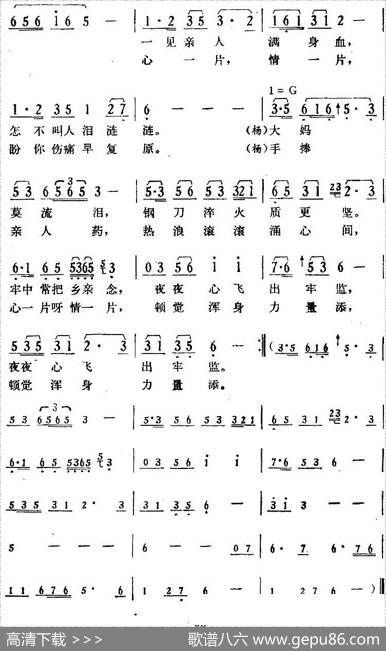 6 5 5 i 5 — 1·2 3 5 3·2 1 6 1 3 1 2 —
一 见 亲 人 满 身 血,
心 一 片, 情 一 片,
1·2 3 5 1 2 7 6 — — —
1=G
3·5 6 1 6 5·3
怎 不 叫 人 泪 涟 涟。 (杨)大 妈
盼 你 伤 痛 早 复 原。 (杨)手 捧
3
5 3 6 5 6 5 3 — 5·3 5 6 5 3 3 2 1 6 5 3 1 2 3 2·3
莫 流 泪, 钢 刀 淬 火 质 更 坚。
亲 人 药, 热 浪 滚 滚 涌 心 间,
6·1 6 5 5 3 6 5 5 3 0 3 5 6 i i 7·6 5 3 6 —
牢中 常把 乡亲 念, 夜 夜 心 飞 出 牢 监,
心一 片呀 情一 片, 顿 觉 浑 身 力 量 添,
5 3 5 3 1 2·3 3 1 3 5 6 — :‖ (3·5 6 1 6 5·3
夜夜 心 飞 出 牢 监。
顿觉 浑 身 力 量 添。
3
5 3 6 5 6 5 3 — 5·3 5 6 5 3 3 2 1 6 5 3 1 2 3 2·3
6·1 6 5 5 3 6 5 5 3 0 3 5 6 i i 7·6 5 3 6 —
5 3 5 3 1 2·3 3 1 3 5 6 — 3 1 3 — —
5 — — — 6 — — 0 7 6·7 6·7 6
1 1 6 7 6 5·6 1 2 7 6 — 1 2 7 6 — )‖
高清下载 >>> 歌谱八六 www.gepu86.com